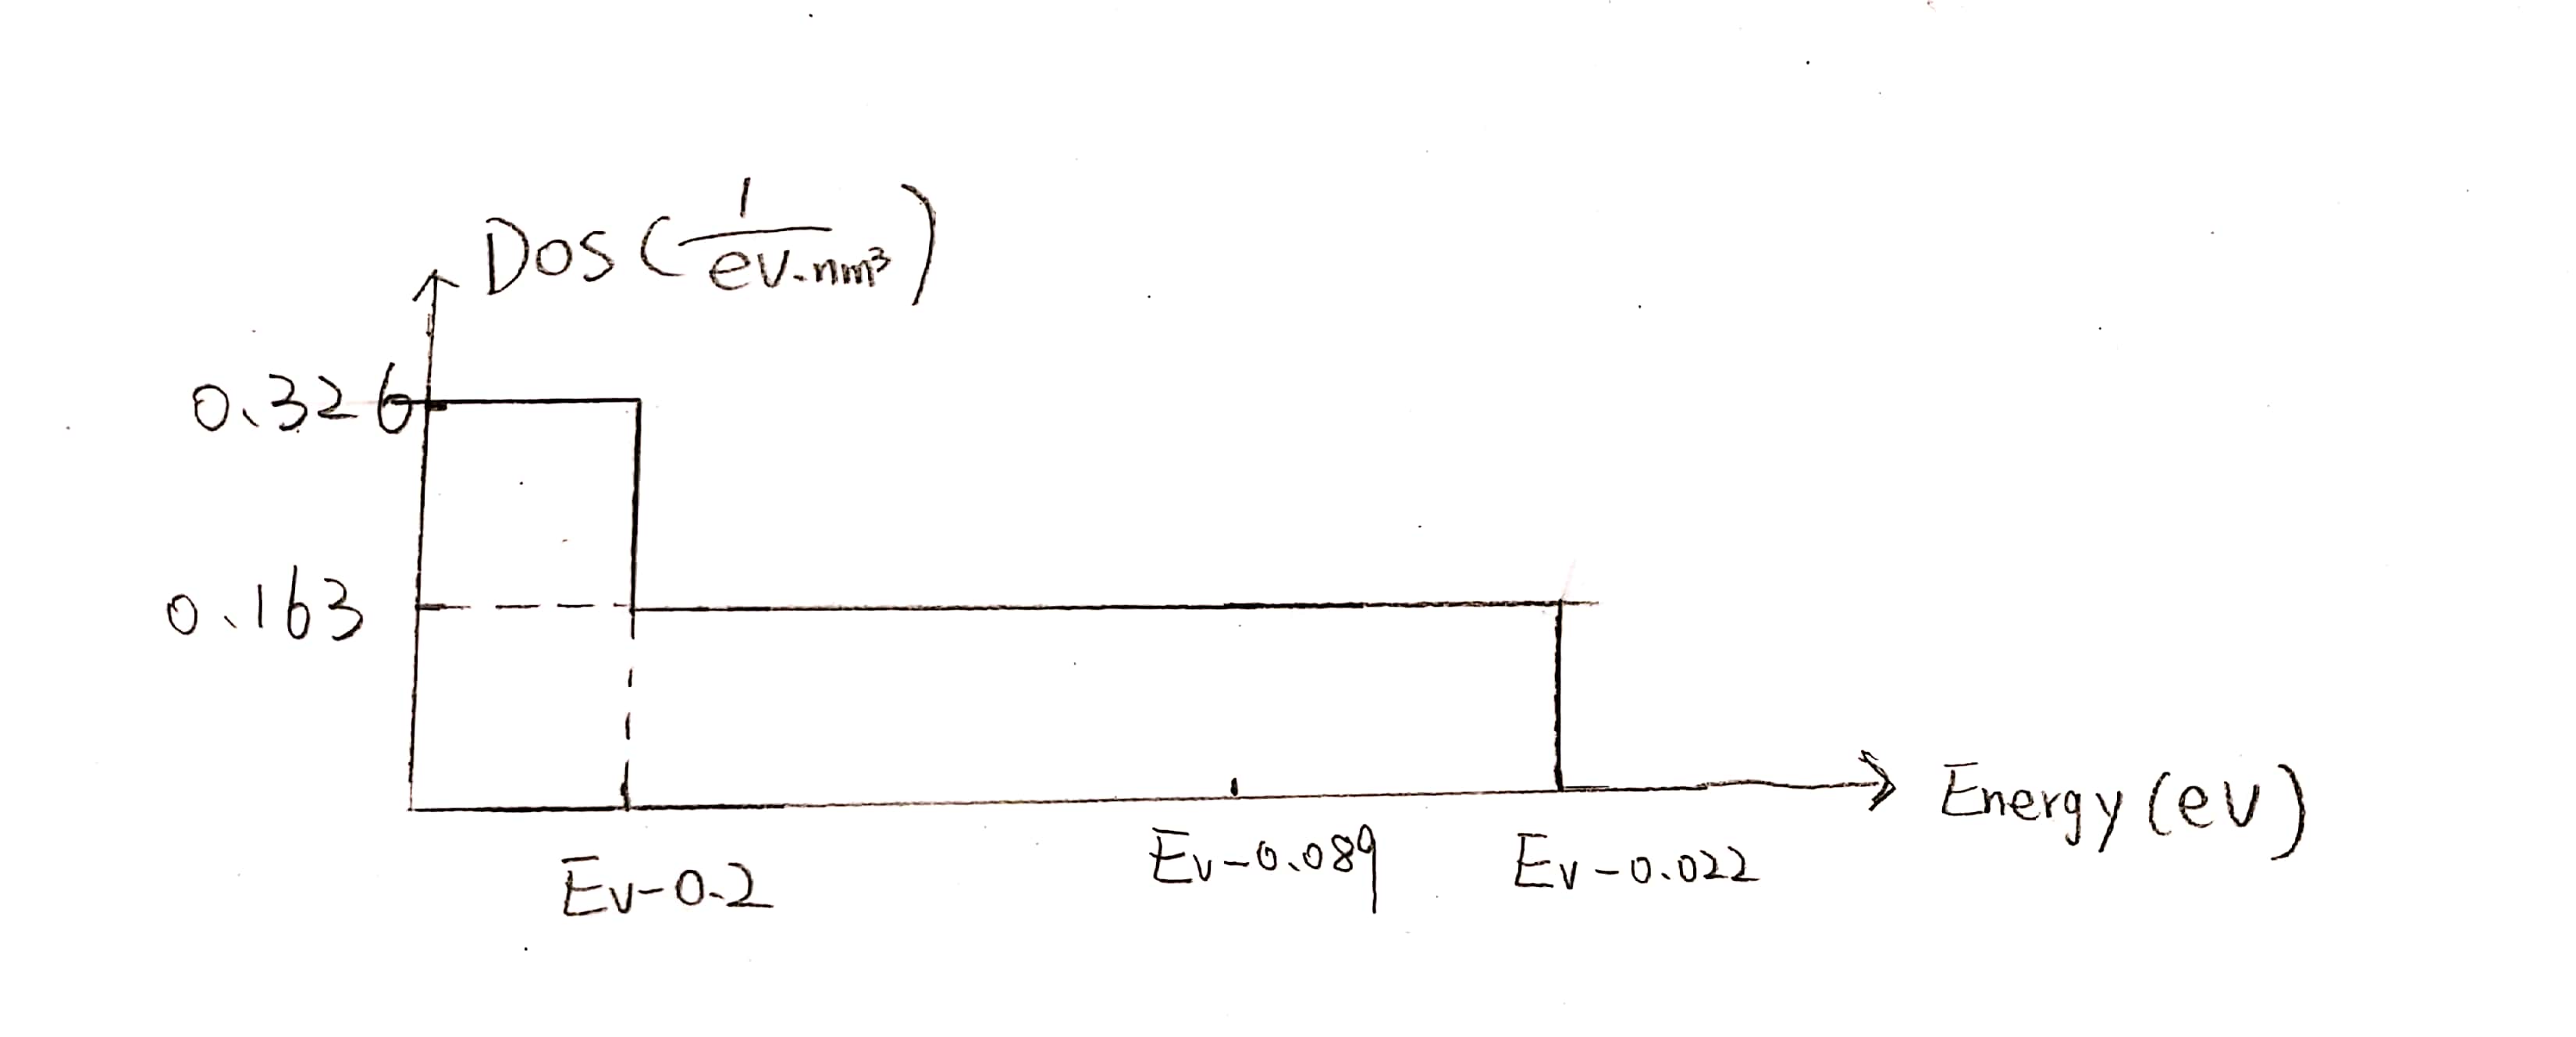 Dos (1/ev.nm³)
0.326
0.163
Ev-0.2
Ev-0.089
Ev-0.022
Energy (eV)